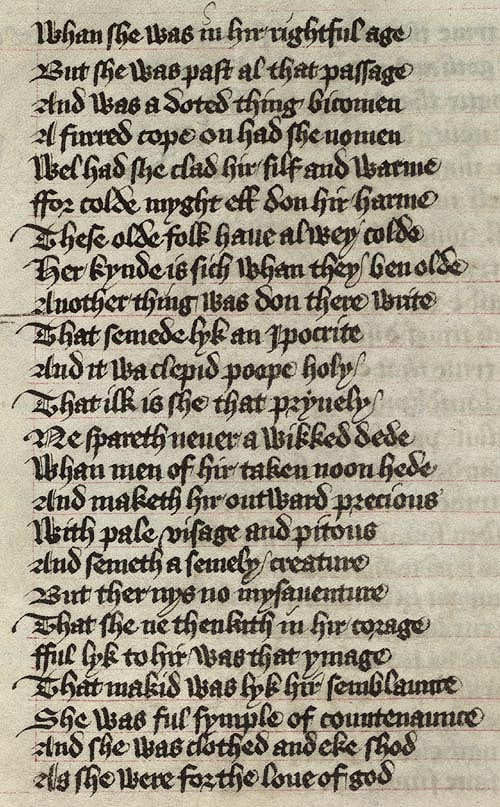 Whan she was in hir rightful age
But she was past al that passage
And was a doted thing bicomen
A furred cope on had she nomen
Wel had she clad hir silf and warme
ffor colde myght ell don hir harme
These olde folk haue alwey colde
Her kynde is sich whan they / ben olde
Another thing was don there write
That semede lyk an Ipocrite
And it wa clepid poope holy /
That ilk is she that pryuely /
Ne spareth neuer a wikked dede
Whan men of hir taken noon hede
And maketh hir outward precious
With pale visage and pitous
And semeth a semely / creature
But ther nys no mysauenture
That she ne thenkith in hir corage
fful lyk to hir was that ymage
That makid was lyk hir semblaunce
She was ful symple of countenaunce
And she was clothed and eke shod
As she were for the loue of god